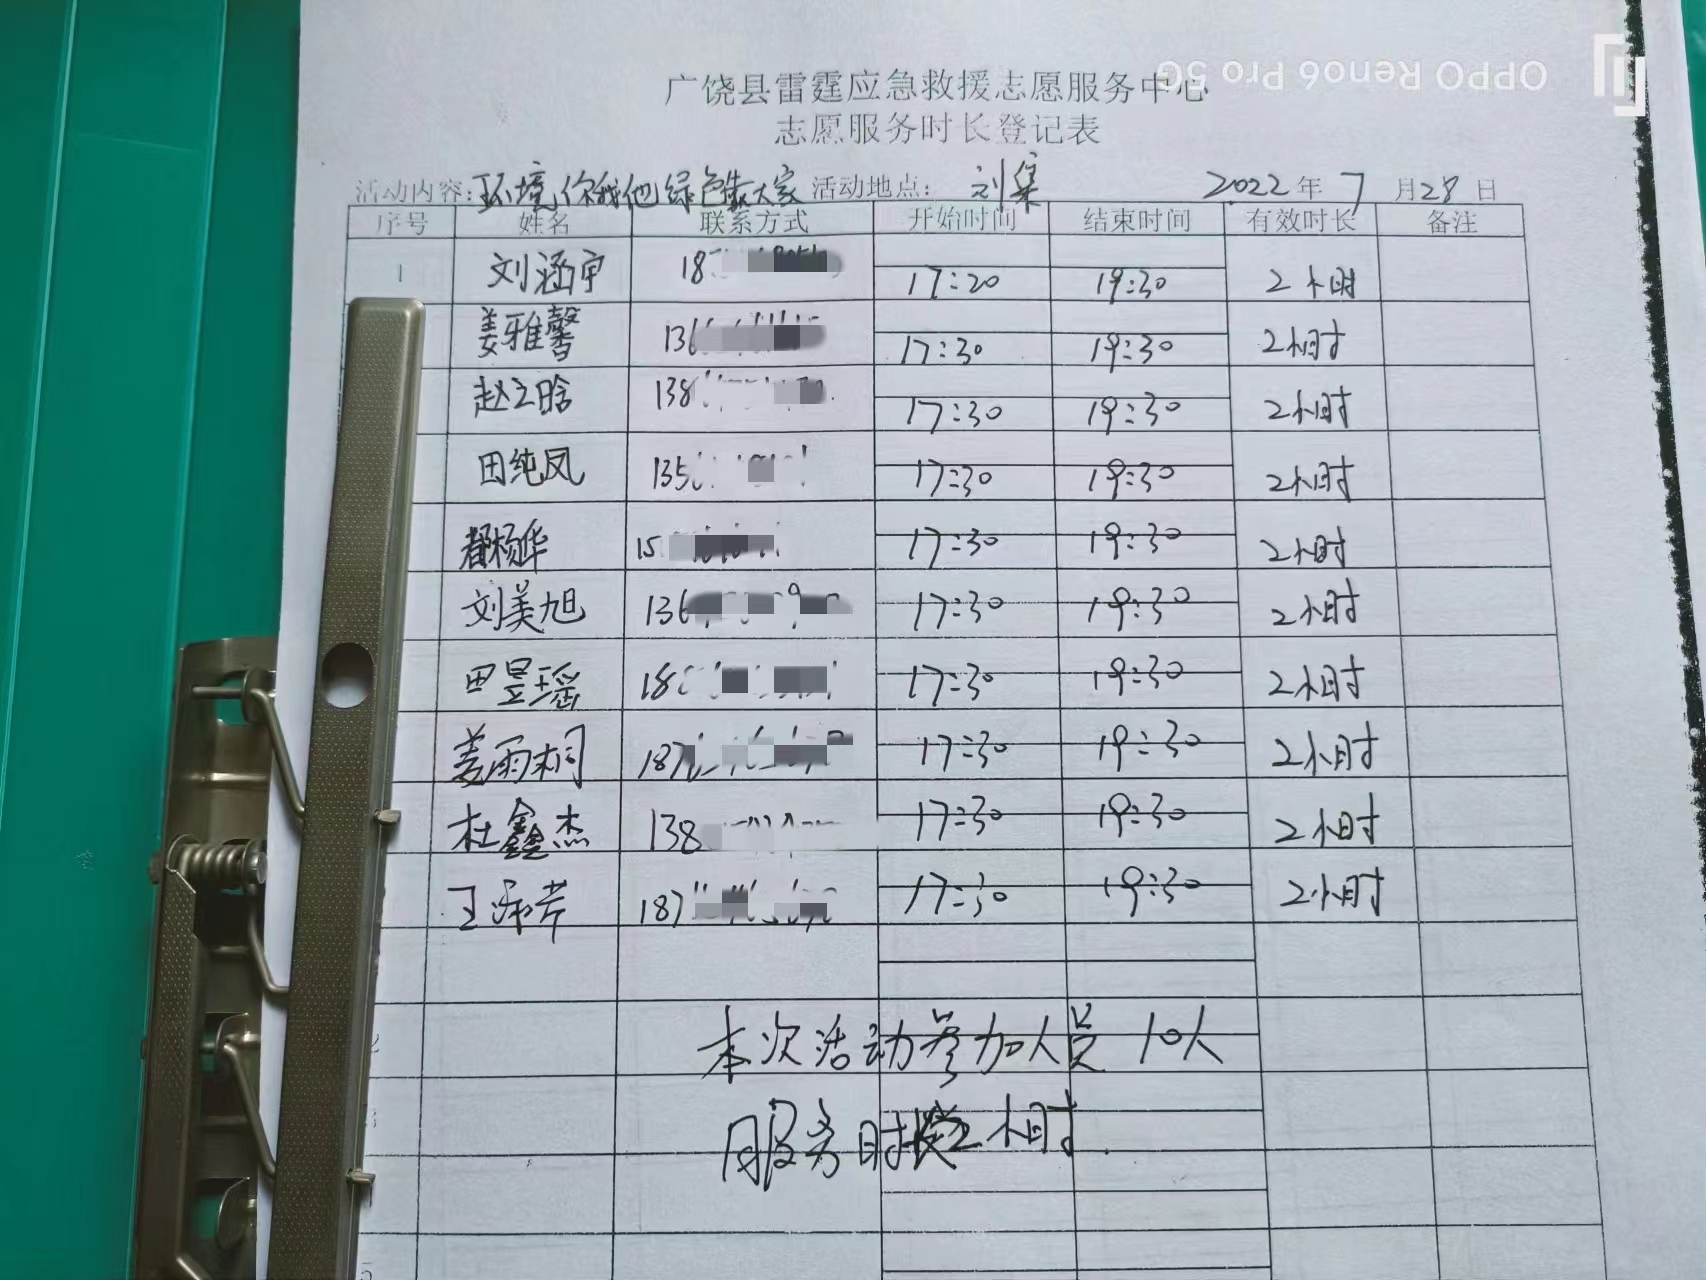 OPPO Reno6 Pro 5G
广饶县雷霆应急救援志愿服务中心
志愿服务时长登记表
活动内容:环境你我他绿色靠大家 活动地点: 刘集 2022年7月28日
序号 姓名 联系方式 开始时间 结束时间 有效时长 备注
1 刘涵宇 18 17:20 19:30 2小时
姜雅馨 136 17:30 19:30 2小时
赵立晗 138 17:30 19:30 2小时
田纯凤 135 17:30 19:30 2小时
都杨华 15 17:30 19:30 2小时
刘美旭 136 17:30 19:30 2小时
田昱瑶 18 17:30 19:30 2小时
姜雨桐 187 17:30 19:30 2小时
杜鑫杰 138 17:30 19:30 2小时
王 187 17:30 19:30 2小时
本次活动参加人员10人
服务时长2小时